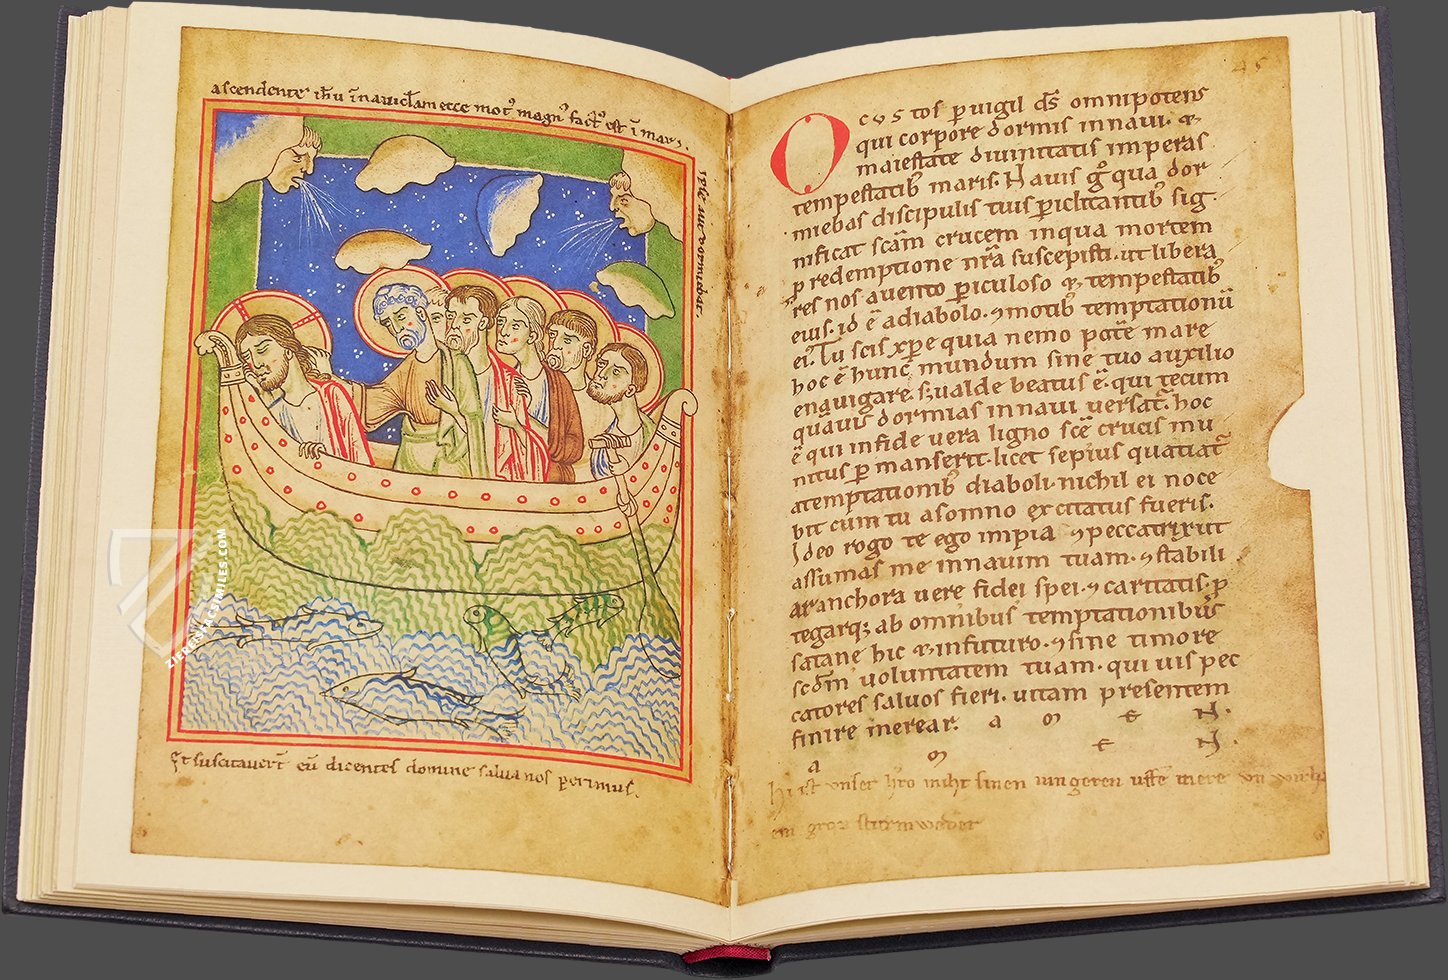 ascendente ihu in naviclam ecce mot' magn' fact' est i mari.
ipse uero dormiebat.
Et suscitaverт eu dicentes domine salva nos perimus.
45
O cvs tos puigil ds omnipotens
qui corpore dormis in navi. &
maiestate divinitatis imperas
tempestatib maris. Navis g qua dor
miebas discipulis tuis periclitantib sig
nificat scam crucem in qua mortem
p redemptione nra suscepisti. ut libera
res nos a vento periculoso & tempestatib
eius. id e a diabolo. ⁊ motib temptationu
ei. Tu scis xpe quia nemo pote mare
hoc e hunc mundum sine tuo auxilio
enavigare. s; valde beatus e. qui tecum
quavis dormias in navi versat. hoc
e qui in fide vera ligno sce crucis mu
nitus p manserit. licet sepius quatiat
a temptationib diaboli. nichil ei noce
bit cum tu a somno excitatus fueris.
Ideo rogo te ego impia ⁊ peccatrix ut
assumas me in navim tuam. ⁊ stabili
ar anchora vere fidei spei. ⁊ caritatis. p
tegarq; ab omnibus temptationibus
satane hic & in futuro. ⁊ sine timore
scdm voluntatem tuam. qui vis pec
catores salvos fieri. vitam presentem
finire merear. a m e N.
a m e N.
Hi ist unser hro miht sinen iungeren uffe mere un
ein groz sturmweder
ZIEREIS FACSIMILES.COM